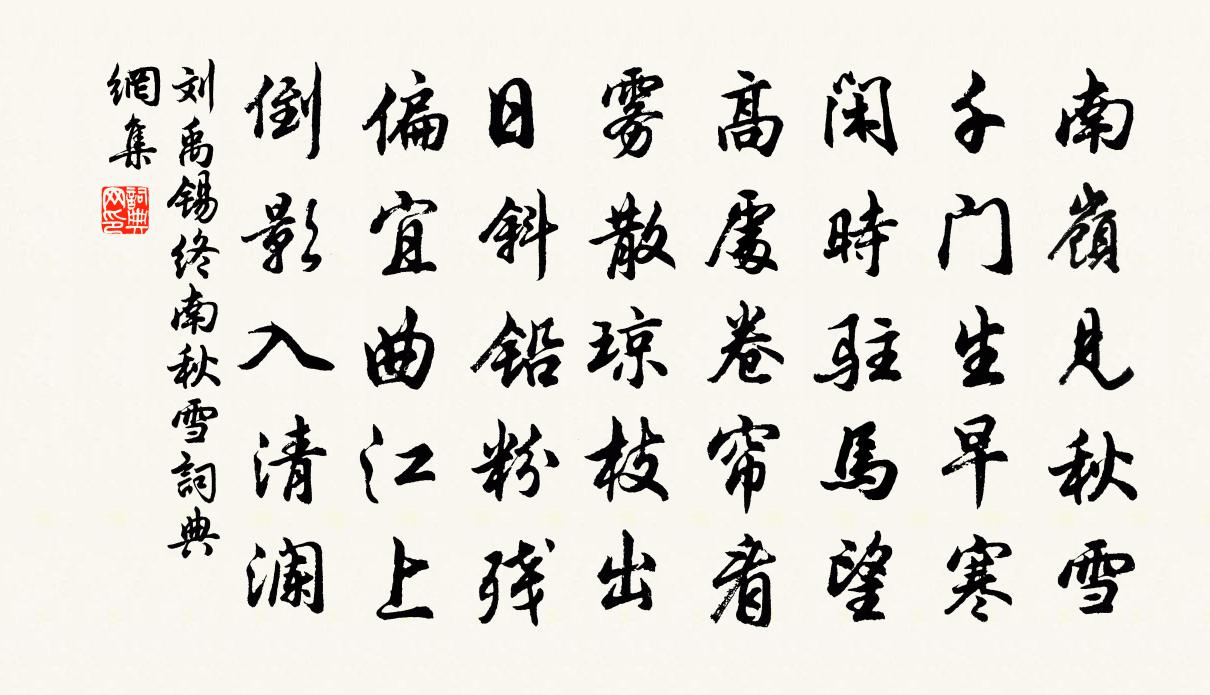 南嶺見秋雪
千门生早寒
閑時駐馬望
高處卷帘看
雾散琼枝出
日斜铅粉残
偏宜曲江上
倒影入清澜
刘禹锡终南秋雪詞典
網集
詞典网印